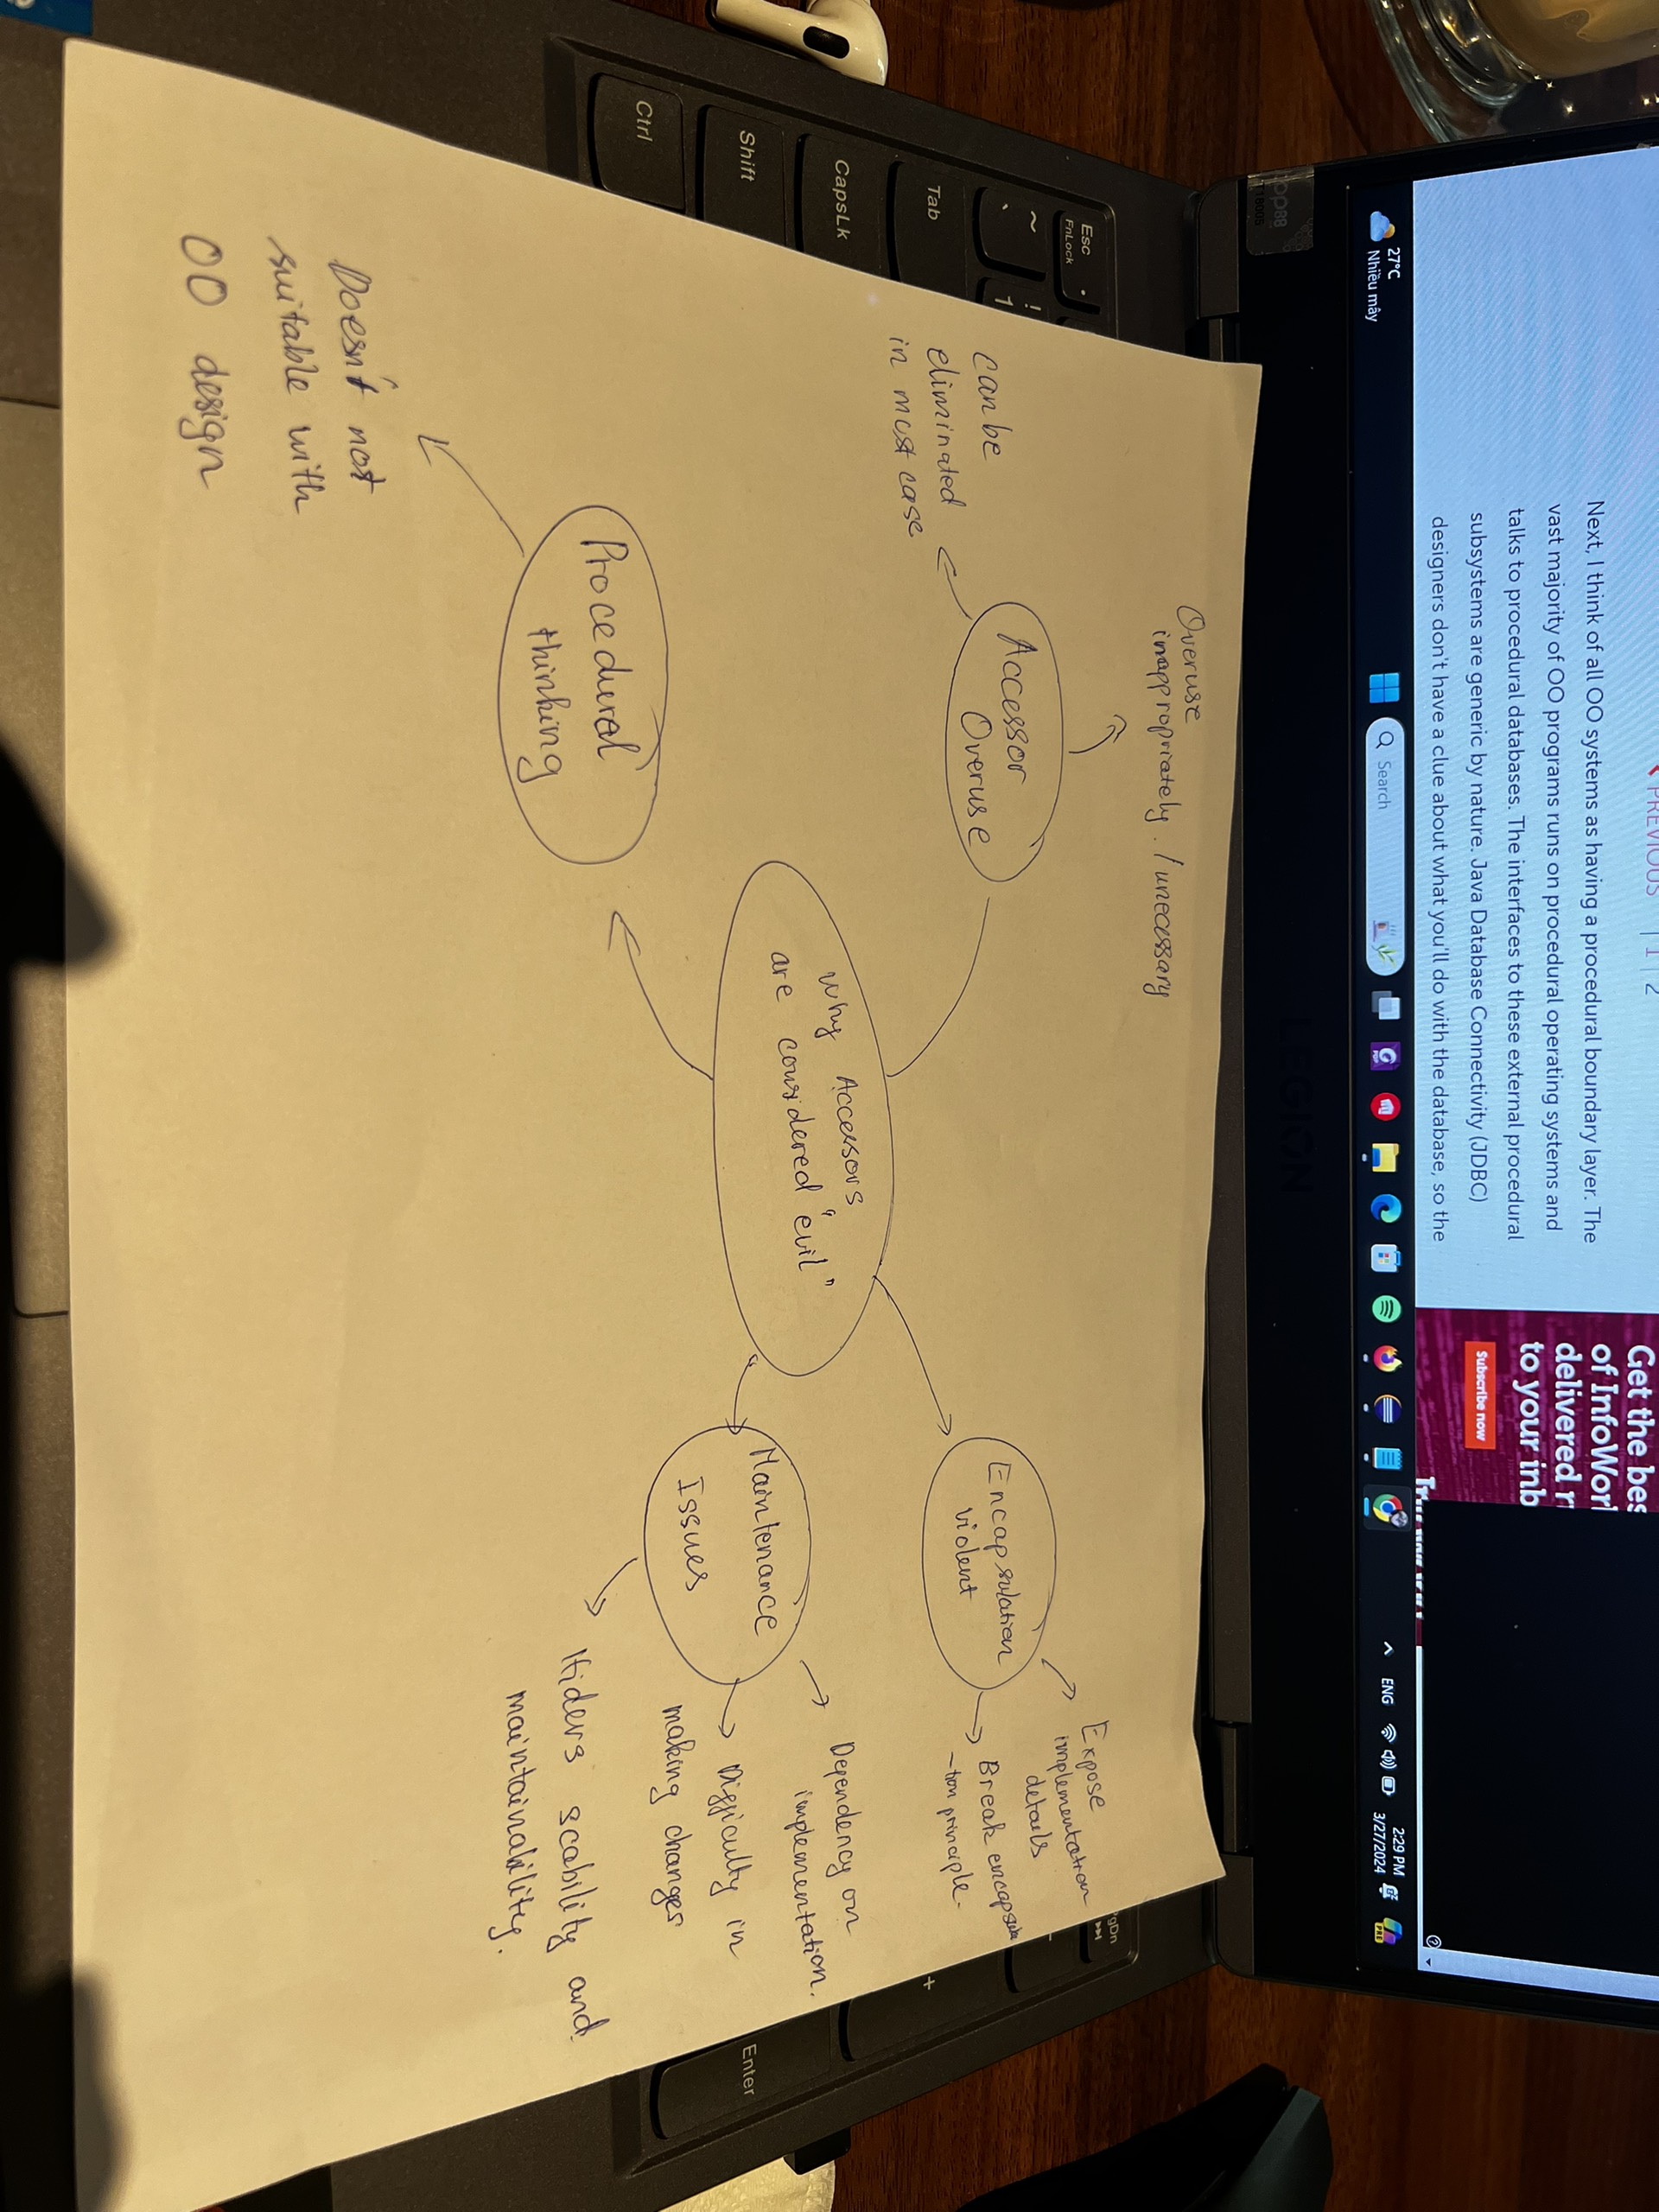 PREVIOUS | 1 | 2
Next, I think of all OO systems as having a procedural boundary layer. The
vast majority of OO programs runs on procedural operating systems and
talks to procedural databases. The interfaces to these external procedural
subsystems are generic by nature. Java Database Connectivity (JDBC)
designers don't have a clue about what you'll do with the database, so the
Get the bes
of InfoWorl
delivered r
to your inb
Subscribe now
27°C
Nhiều mây
Search
ENG
2:29 PM
3/27/2024
LEGION
Esc
FnLock
~
`
!
1
Tab
CapsLk
Shift
Ctrl
PgDn
+
Enter
Overuse
inappropriately. / unecessary
Accessor
Overuse
can be
eliminated
in most case
Why Accessors
are considered "evil"
Procedural
thinking
Doesn't not
suitable with
OO design
Encapsulation
violent
Expose
implementation
details
Break encapsula
-tion principle.
Maintenance
Issues
Dependency on
implementation.
Difficulty in
making changes
Hiders scability and
maintainability.